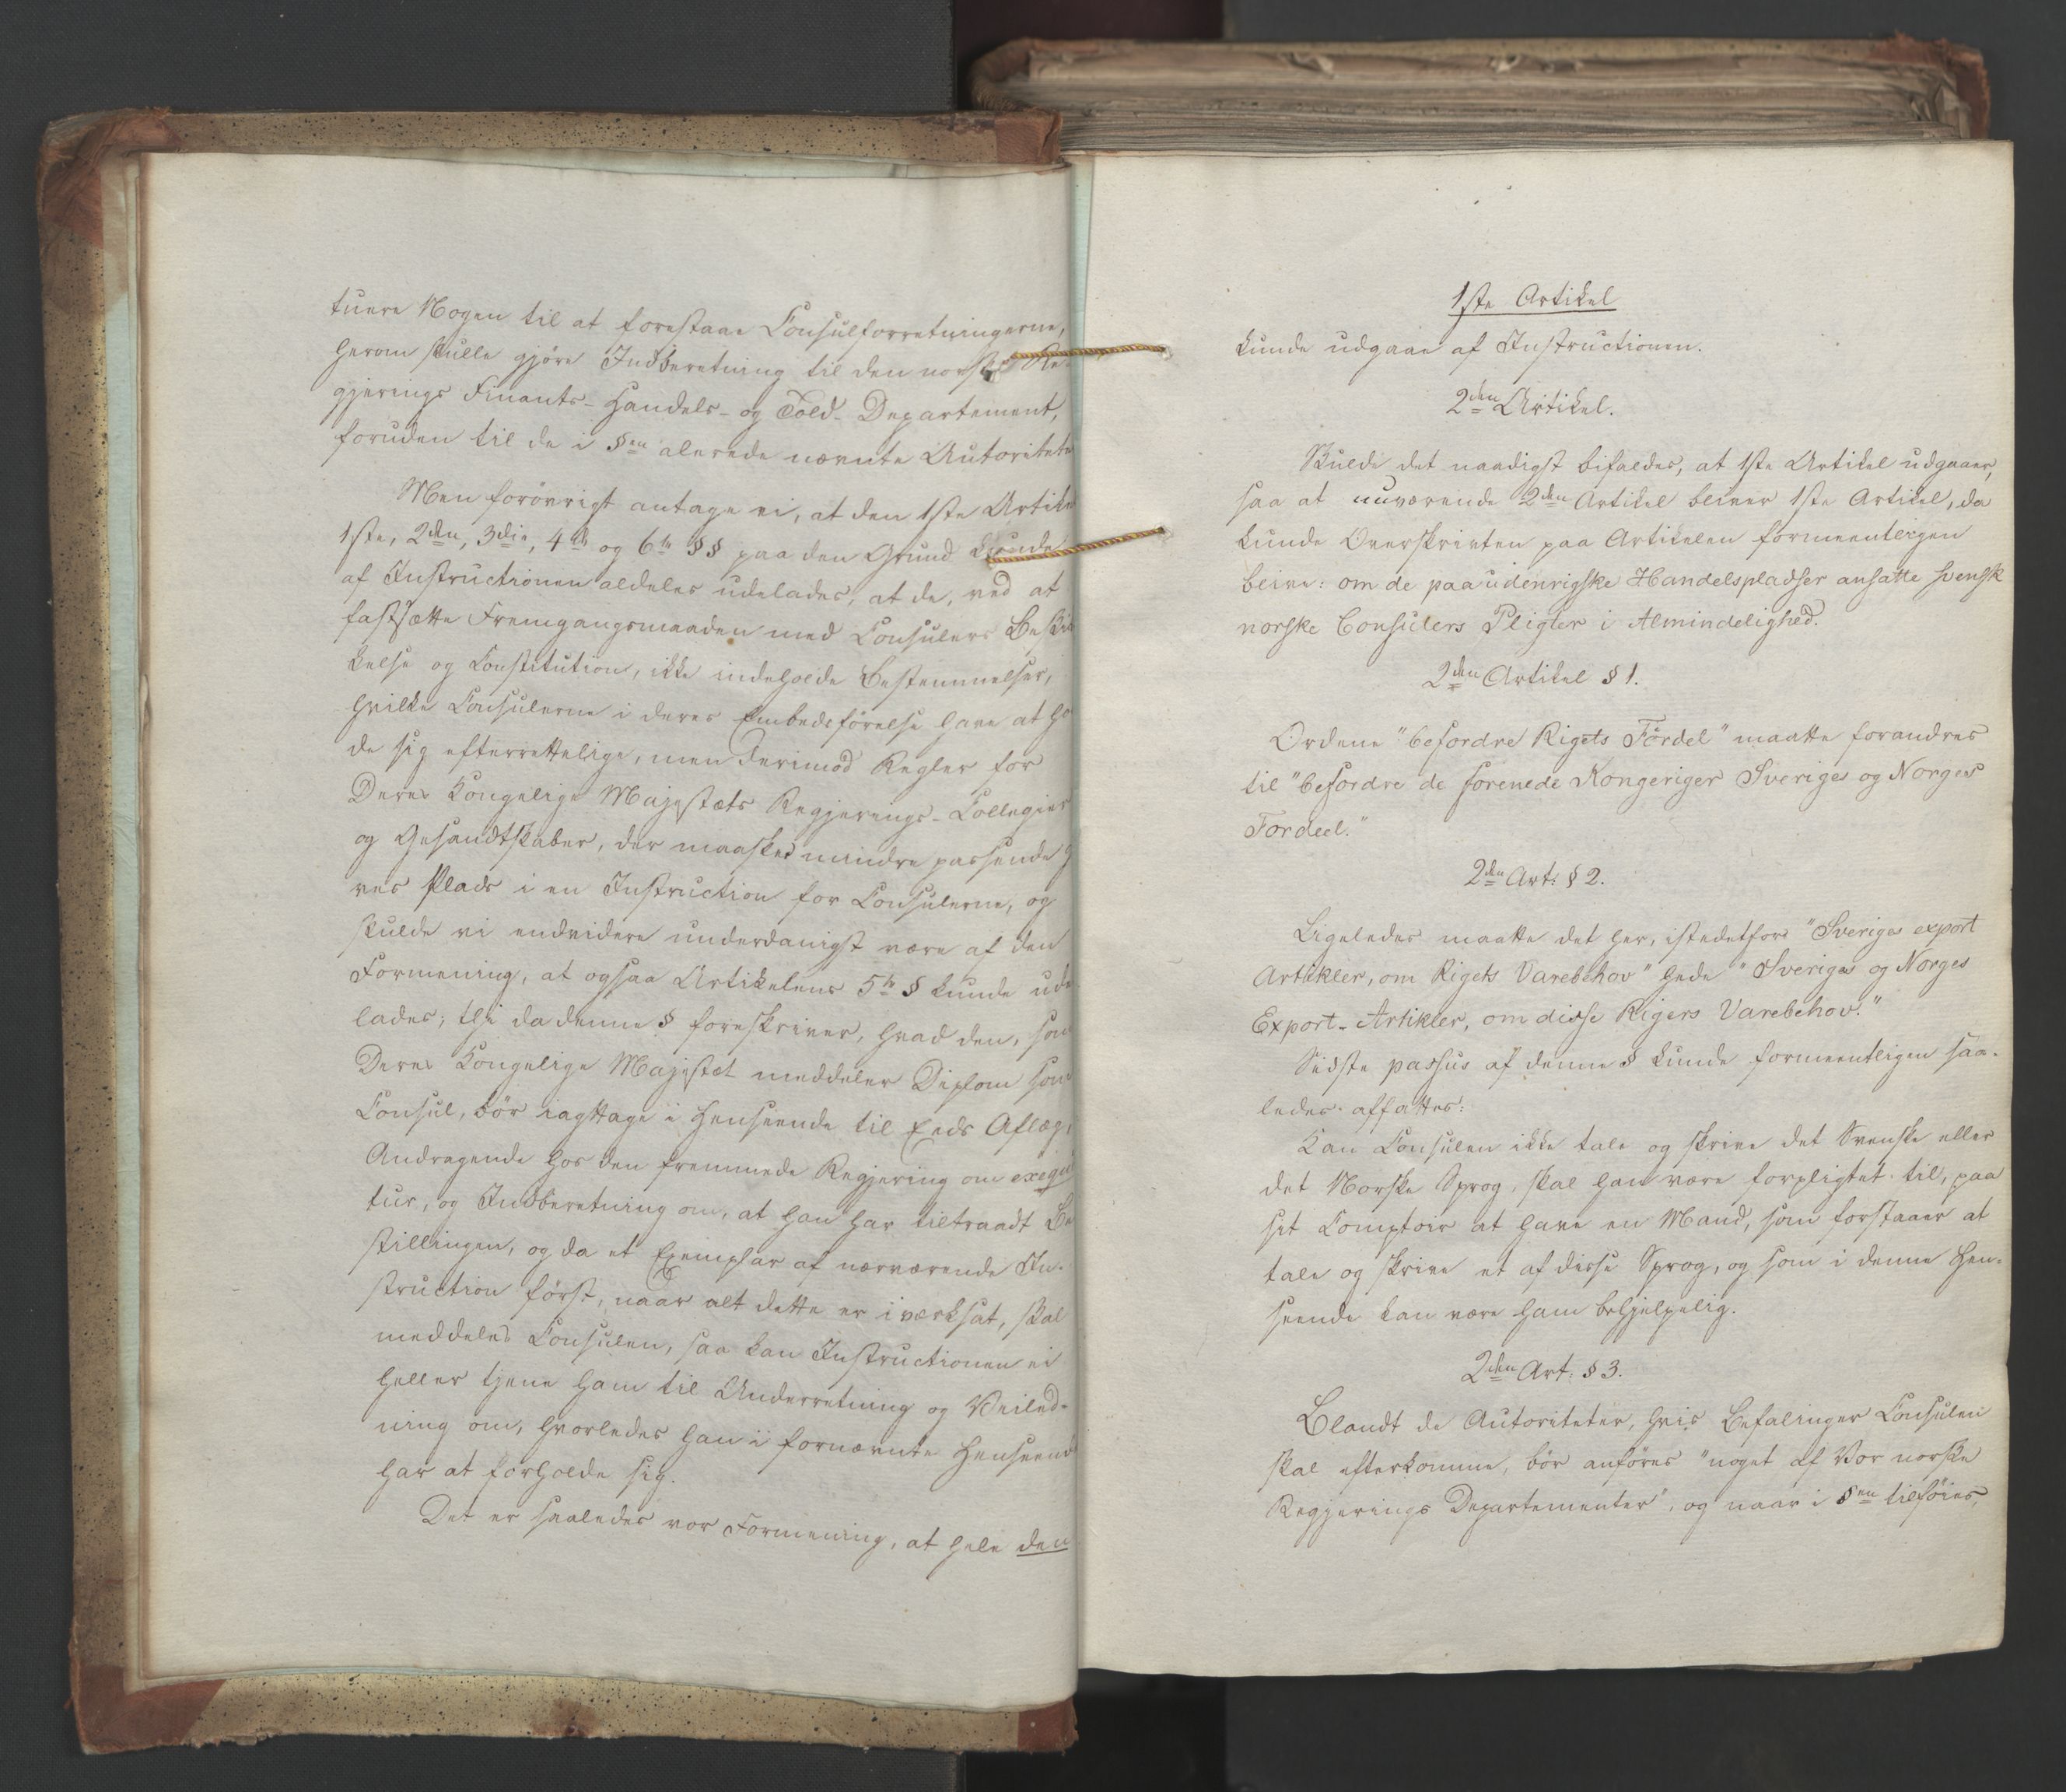 tuere Nogen til at forestaae Consulforretningerne,
herom skulle gjöre Indberetning til den norske Re-
gjerings Finants- Handels- og Told- Departement,
foruden til de i §en alerede nævnte Autoritete
Men forövrigt antage vi, at den 1ste Artike
1ste, 2den, 3die, 4de og 6te §§ paa den Grund kunde
af Instructionen aldeles udelades, at de, ved at
fastsætte Fremgangsmaaden med Consulers Beskik
kelse og Constitution, ikke indeholde Bestemmelser,
hvilke Consulerne i deres Embedsförelse have at hol
de sig efterrettelige, men derimod Regler for
Deres Kongelige Majestæts Regjerings-Collegier
og Gesandtskaber, der maaskee mindre passende g
ves Plads i en Instruction for Consulerne, og
skulde vi endvidere underdanigst være af den
Formening, at ogsaa Artikelens 5te § kunde ude
lades; thi da denne § foreskriver, hvad den, som
Deres Kongelige Majestæt meddeler Diplom som
Consul, bör iagttage i Henseende til Eeds Aflæg,
Andragende hos den fremmede Regjering om exequa
tur, og Indberetning om, at han har tiltraadt Be
stillingen, og da et Exemplar af nærværende In-
struction först, naar alt dette er iværksat, skal
meddeles Consulen, saa kan Instructionen ei
heller tjene ham til Underretning og Veiled-
ning om, hvorledes han i fornævnte Henseende
har at forholde sig.
Det er saaledes vor Formening, at hele den
1ste Artikel
kunde udgaae af Instructionen.
2den Artikel.
Skulde det naadigst bifaldes, at 1ste Artikel udgaaer,
saa at nuværende 2den Artikel bliver 1ste Artikel, da
kunde Overskriften paa Artikelen formeentligen
blive: om de paa udenrigske Handelspladser ansatte svensk
norske Consulers Pligter i Almindelighed.
2den Artikel § 1.
Ordene "befordre Rigets Fördel" maatte forandres
til "befordre de forenede Kongeriger Sveriges og Norges
Fordeel."
2den Art: § 2.
Ligeledes maatte det her, istedetfor "Sveriges export
Artikler, om Rigets Varebehov" hede "Sveriges og Norges
Export-Artikler, om disse Rigers Varebehov."
Sidste passus af denne § kunde formeentligen saa-
ledes affattes:
Kan Consulen ikke tale og skrive det Svenske eller
det Norske Sprog, skal han være forpligtet til, paa
sit Comptoir at have en Mand, som forstaaer at
tale og skrive et af disse Sprog, og som i denne Hen-
seende kan være ham behjelpelig.
2den Art: § 3.
Blandt de Autoriteter, hvis Befalinger Consulen
skal efterkomme, bör anföres "noget af Vor norske
Regjerings Departementer", og naar i §en tilföies,